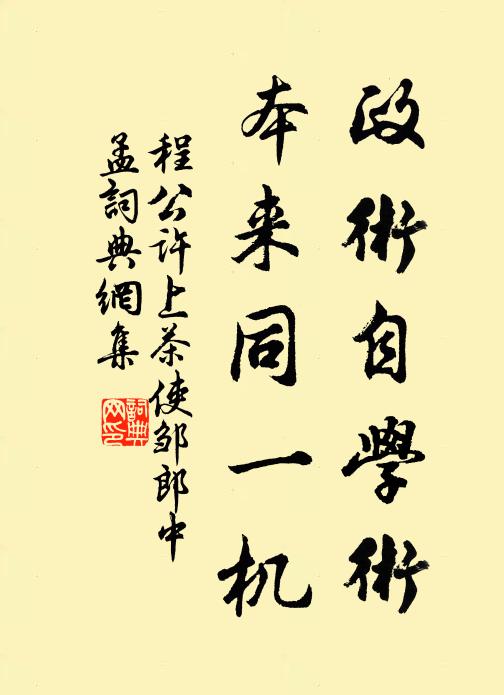 政術自學術
本来同一机
程公许上茶使邹郎中
孟詞典網集
詞典网印